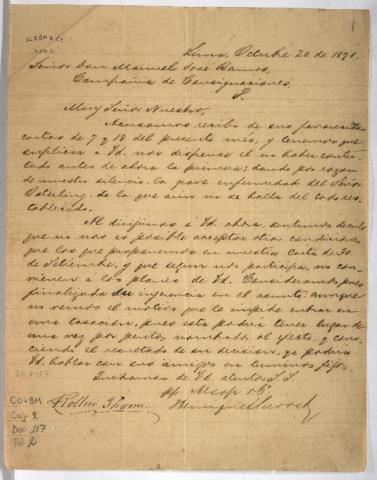 ALSOP & Cº
LIMA
Lima, Octubre 20 de 1870.
Señor Don Manuel José Ramos,
Compañia de Consignaciones,
P.
Muy Señor Nuestro,
Acusamos recibo de sus favorecidas
cartas de 7 y 18 del presente mes, y tenemos que
suplicar á Vd. nos dispense el no haber contes-
tado antes de ahora la primera; dando por razon
de nuestro silencio, la grave enfermedad del Señor
de la que aun no se halla del todo res-
tablecido.
Al dirijirnos á Vd. ahora, sentimos decirle
que no nos es posible aceptar otras condiciones
que las que proponemos en nuestra carta de 30
de Setiembre, y que segun nos participa, no con-
vienen á los planes de Vd. Consideramos pues
finalizada su injerencia en el asunto, aunque
no vemos el motivo que le impide entrar en
una tasacion, pues esta podria tener lugar de
una vez por peritos nombrados al efecto, y cono-
ciendo el resultado de su decision, ya podria
Vd. hablar con sus amigos en terminos fijos.
Quedamos de Vd. atentos S. S.
pp. Alsop & Cº
CO-BM
Caj. 2
Doc. 117
Fol. 2